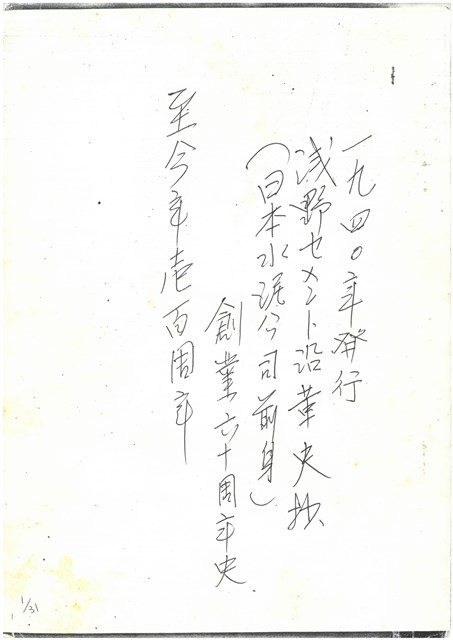 一九四〇年発行
浅野セメント沿革史抄
（日本水泥公司前身）
創業六十周年史
至今年壱百周年
1/31